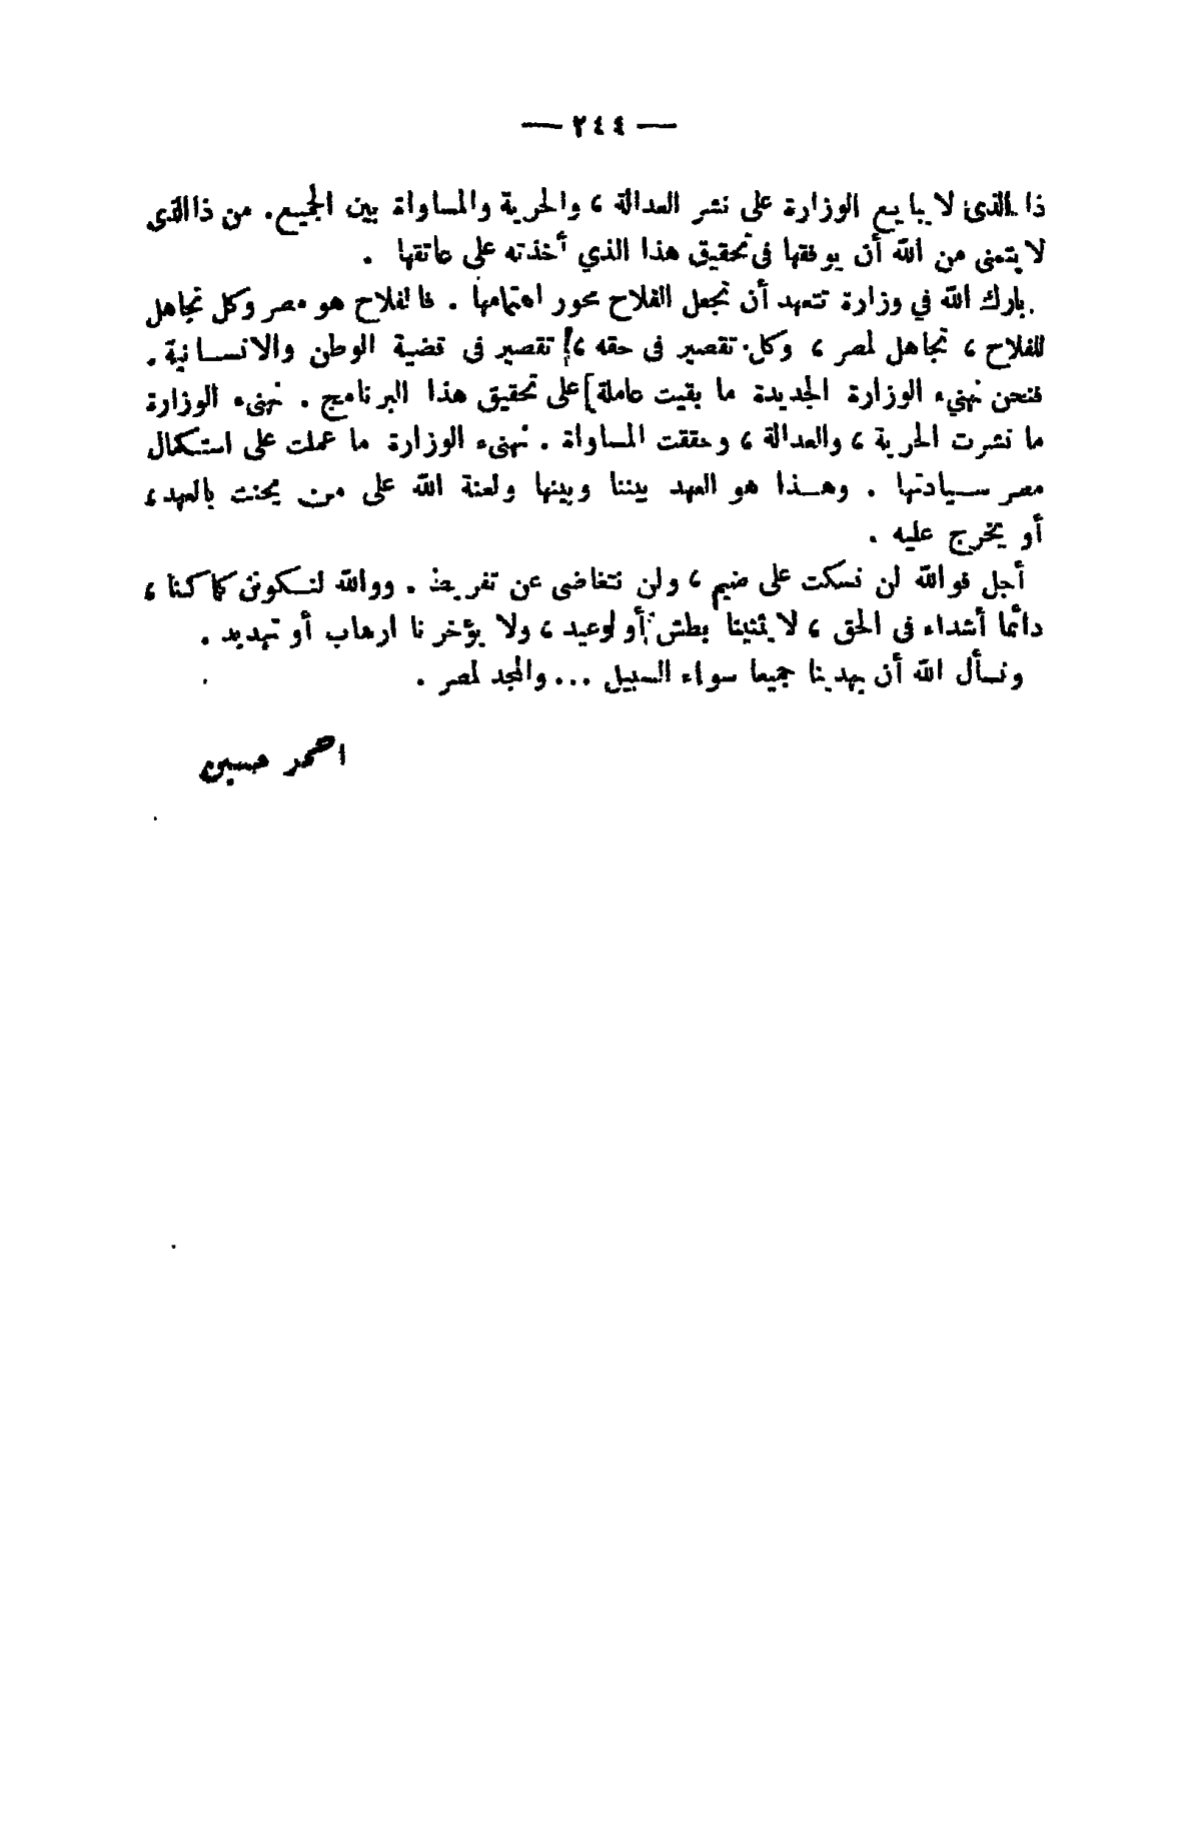 — ٢٤٤ —
ذا الذى لا يبايع الوزارة على نشر العدالة ، والحرية والمساواة بين الجميع. من ذا الذى
لا يتمنى من الله أن يوفقها فى تحقيق هذا الذي أخذته على عاتقها .
بارك الله في وزارة تتعهد أن تجعل الفلاح محور اهتمامها . فالفلاح هو مصر وكل تجاهل
للفلاح ، تجاهل لمصر ، وكل تقصير فى حقه ، تقصير فى قضية الوطن والانسانية .
فنحن نهنيء الوزارة الجديدة ما بقيت عاملة على تحقيق هذا البرنامج . نهنىء الوزارة
ما نشرت الحرية ، والعدالة ، وحققت المساواة . نهنىء الوزارة ما عملت على استكمال
مصر سيادتها . وهذا هو العهد بيننا وبينها ولعنة الله على من يحنث بالعهد ،
أو يخرج عليه .
أجل فوالله لن نسكت على ضيم ، ولن نتغاضى عن تفريط . ووالله لنكونن كما كنا ،
دائما أشداء فى الحق ، لا يثنينا بطش أو وعيد ، ولا يؤخرنا ارهاب أو تهديد .
ونسأل الله أن يهدينا جميعا سواء السبيل ... والمجد لمصر .
احمد حسين